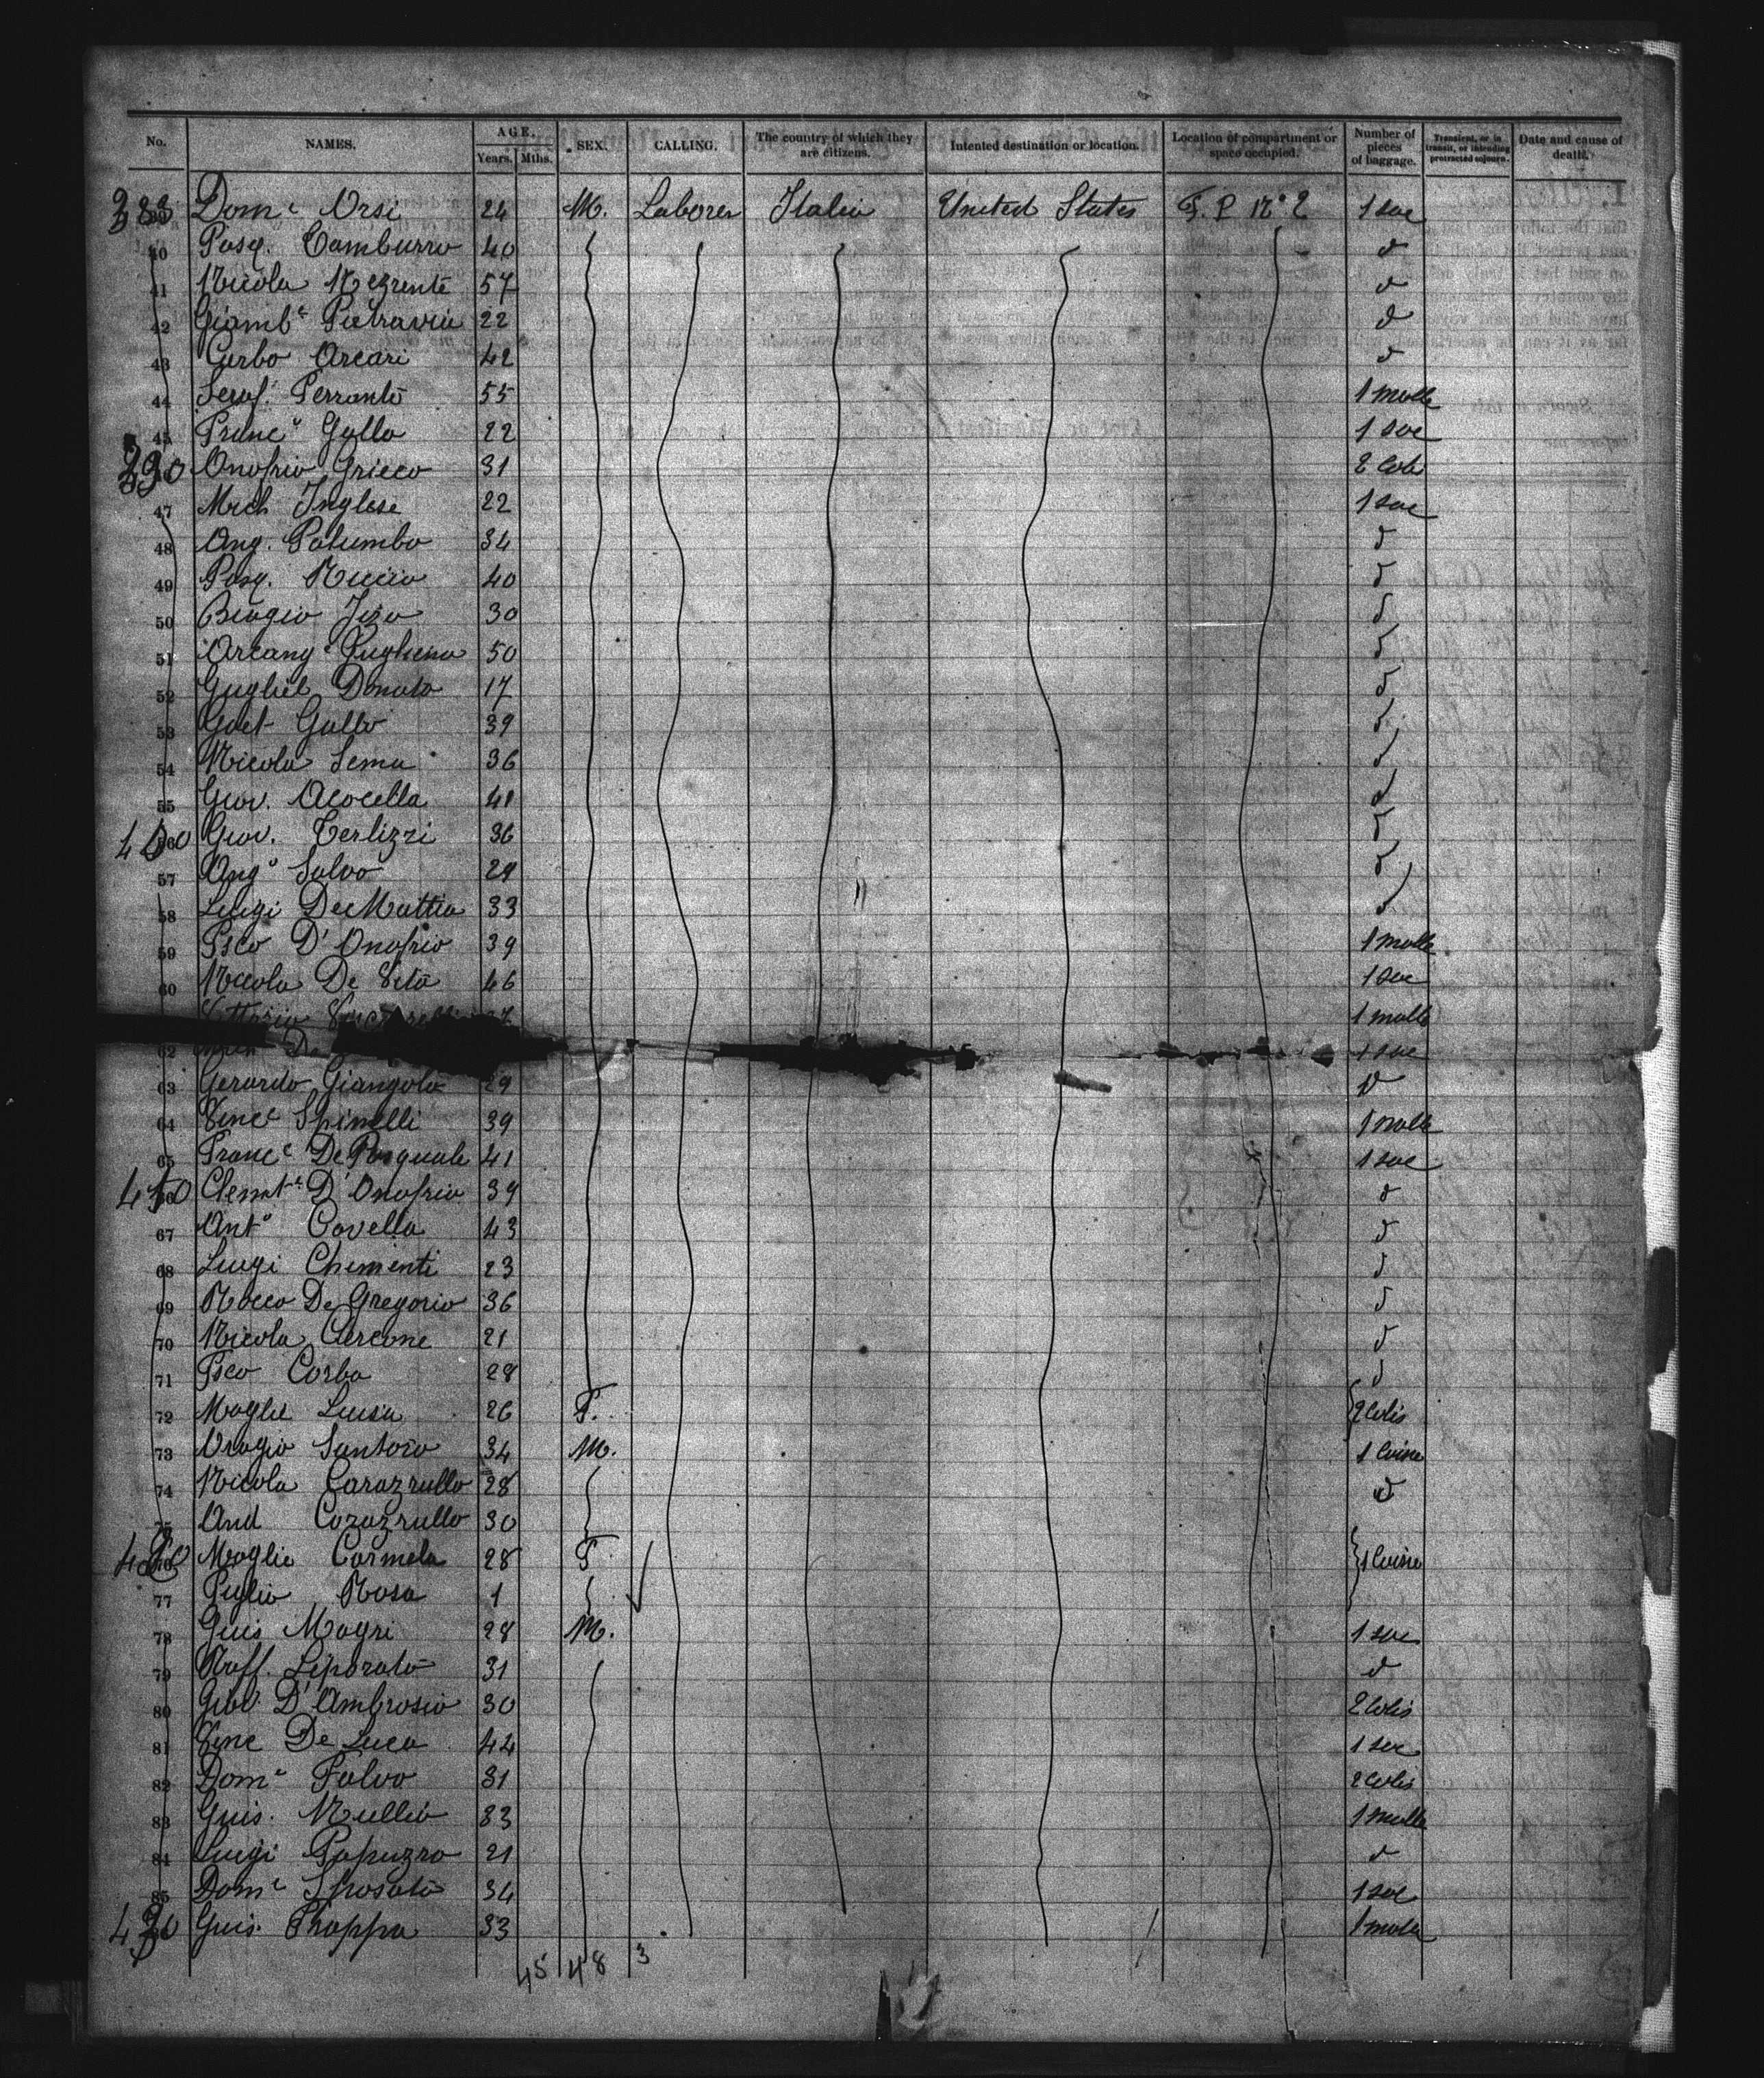 No. NAMES. AGE. Years. Mths. SEX. CALLING. The country of which they are citizens. Intented destination or location. Location of compartment or space occupied. Number of pieces of baggage. Transient, or in transit, or intending protracted sojourn. Date and cause of death.
383 Domc Orsi 24 M. Laborer Italia United States 1 sac
40 Pasq. Tamburro 40 d
41 Nicola 57 d
42 Giambe 22 d
43 Arcari 42 d
44 Seraf. Perrante 55 1 malle
45 Franco Gallo 22 1 sac
390 Onofrio Grieco 31 2 Colis
47 Mich Inglese 22 1 sac
48 Ang. Palumbo 34 d
49 Pasq. Riccio 40 d
50 Biagio 30 d
51 Arcang 50 d
52 Gugliel Donato 17 d
53 Gaet Gallo 39 d
54 Nicola Sema 36 d
55 Giov. Acocella 41 d
400 Giov. Terlizzi 36 d
57 Ango Salvo 29 d
58 Luigi De Mattia 33 d
59 Fsco D'Onofrio 39 1 malle
60 Nicola De Vito 46 1 sac
1 malle
62 1 sac
63 Gerardo Giangola 29 d
64 Vinc Spinelli 39 1 malle
65 Franc De Pasquale 41 1 sac
410 Clemte D'Onofrio 39 d
67 Anto Covella 43 d
68 Luigi Chimenti 23 d
69 Rocco De Gregorio 36 d
70 Nicola Cercone 21 d
71 Fsco Corba 28 d
72 Moglie Luisa 26 F. 2 Colis
73 Santoro 34 M. 1 Caisse
74 Nicola Carazzullo 28 d
75 And Cozazzullo 30
420 Moglie Carmela 28 F 1 Caisse
77 Figlia Rosa 1
78 Guis Magri 28 M. 1 sac
79 Raff. Liporato 31 d
80 Giov. D'Ambrosio 30 2 Colis
81 Vinc De Luca 44 1 sac
82 Dom Falvo 31 2 Colis
83 Guis. Nullio 33 1 malle
84 Luigi Papuzzo 21 d
85 Domc Sposato 34 1 sac
430 Guis. Chiappa 33 1 malle
45 48 3